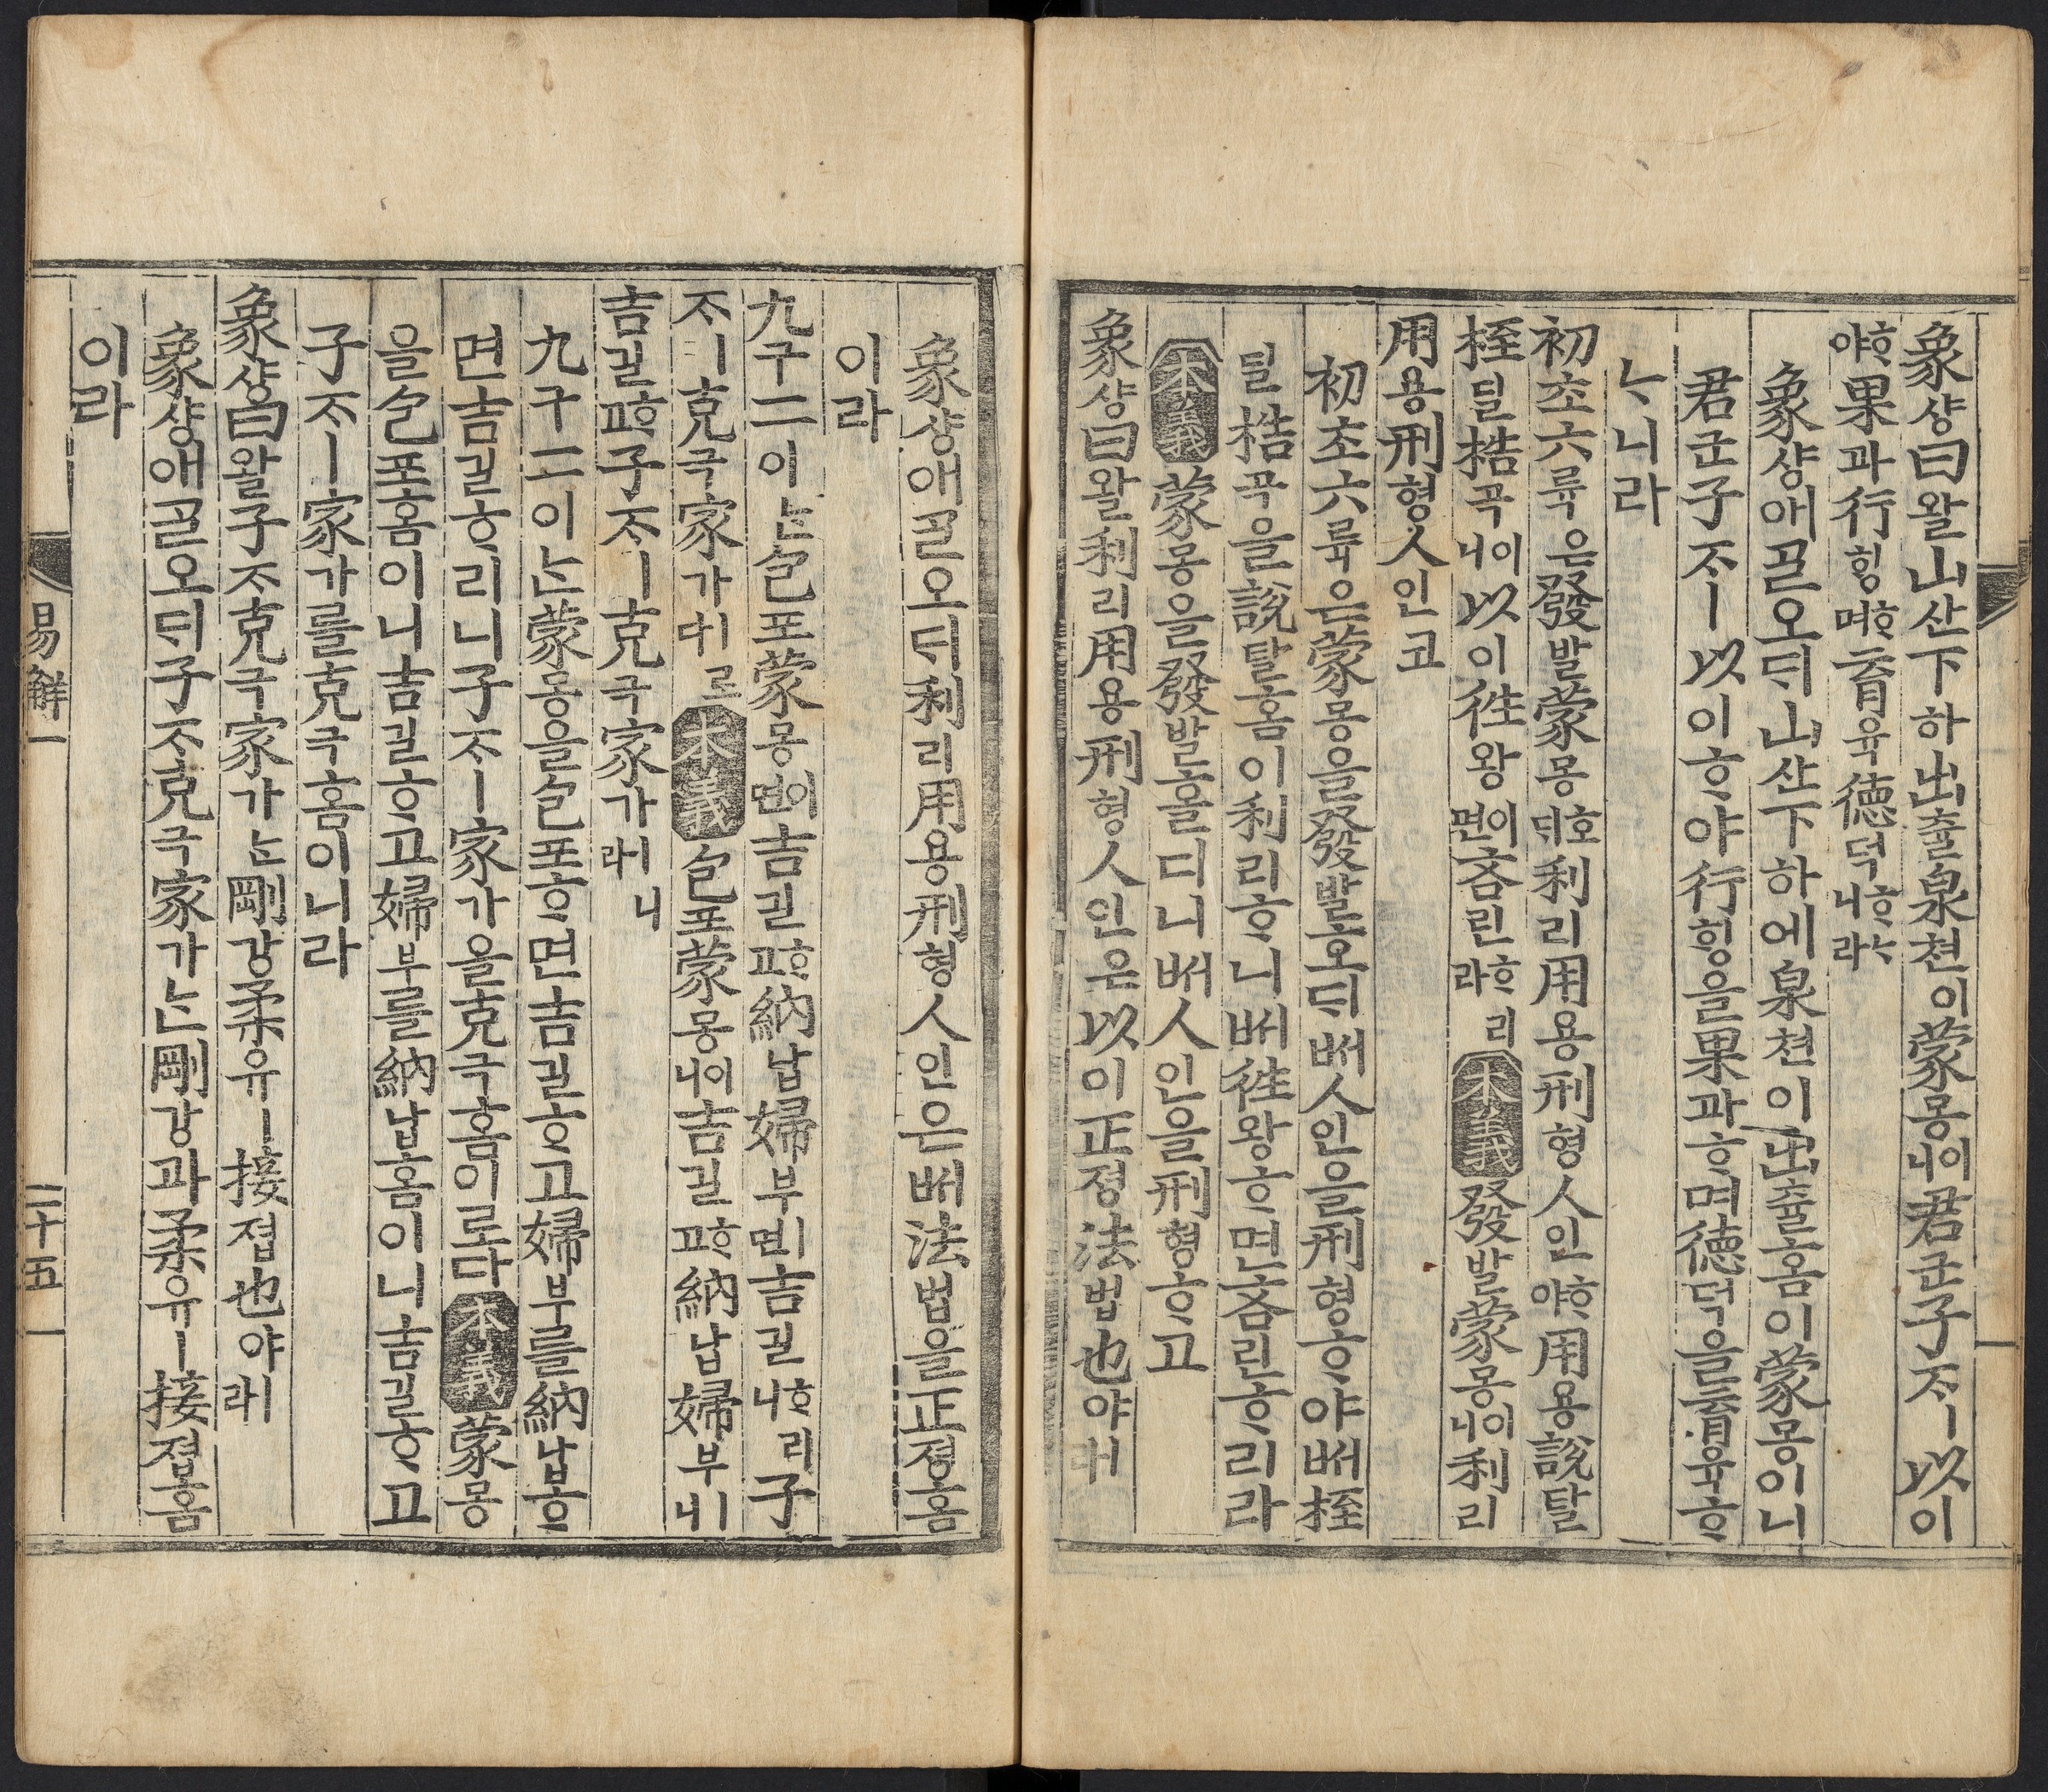 象샹曰왈山산下하出츌泉쳔이蒙몽이니君군子ᄌᆞㅣ以이
ᄒᆞ야果과行ᄒᆡᆼᄒᆞ며育육德덕ᄒᆞᄂᆞ니라
象샹애ᄀᆞᆯ오ᄃᆡ山산下하에泉쳔이出츌홈이蒙몽이니
君군子ᄌᆞㅣ以이ᄒᆞ야行ᄒᆡᆼ을果과ᄒᆞ며德덕을育육ᄒᆞ
ᄂᆞ니라
初초六륙은發발蒙몽호ᄃᆡ利리用용刑형人인ᄒᆞ야用용說탈
桎딜梏곡이니以이徃왕이면吝린ᄒᆞ리라本義發발蒙몽이니利리
用용刑형人인코
初초六륙은蒙몽을發발호ᄃᆡᄡᅥ人인을刑형ᄒᆞ야ᄡᅥ桎
딜梏곡을說탈홈이利리ᄒᆞ니ᄡᅥ徃왕ᄒᆞ면吝린ᄒᆞ리라
本義蒙몽을發발홀디니ᄡᅥ人인을刑형ᄒᆞ고
象샹曰왈利리用용刑형人인은以이正졍法법也야ㅣ라
象샹애ᄀᆞᆯ오ᄃᆡ利리用용刑형人인은ᄡᅥ法법을正졍홈
이라
九구二이ᄂᆞᆫ包포蒙몽이면吉길ᄒᆞ고納납婦부ㅣ면吉길ᄒᆞ리니子
ᄌᆞㅣ克극家가ㅣ로다本義包포蒙몽이니吉길ᄒᆞ고納납婦부ㅣ니
吉길ᄒᆞ고子ᄌᆞㅣ克극家가ㅣ니라
九구二이ᄂᆞᆫ蒙몽을包포ᄒᆞ면吉길ᄒᆞ고婦부를納납ᄒᆞ
면吉길ᄒᆞ리니子ᄌᆞㅣ家가을克극홈이로다本義蒙몽
을包포홈이니吉길ᄒᆞ고婦부를納납홈이니吉길ᄒᆞ고
子ᄌᆞㅣ家가를克극홈이니라
象샹曰왈子ᄌᆞ克극家가ᄂᆞᆫ剛강柔유ㅣ接졉也야ㅣ라
象샹애ᄀᆞᆯ오ᄃᆡ子ᄌᆞ克극家가ᄂᆞᆫ剛강과柔유ㅣ接졉홈
이라
易解一 二十五